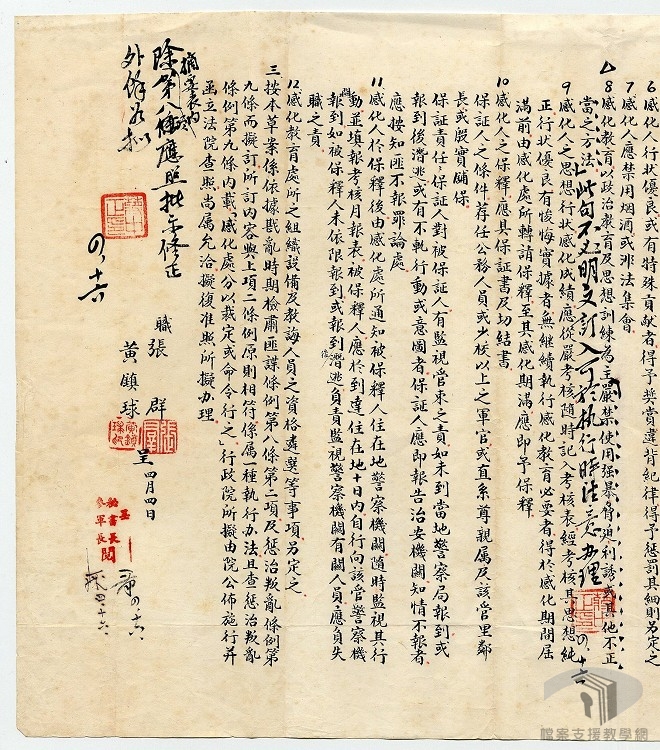 6感化人行狀優良或有特殊貢献者得予奬賞違背紀律得予懲罰其細則另定之
7感化人應禁用烟酒或非法集會
8感化教育以政治教育及思想訓練為主嚴禁使用强暴脅迫利誘或其他不正
當之方法
此句不必明文訂入可於執行時注意办理
四、十六
9感化人之思想行狀感化成績應從嚴考核隨時記入考核表經考核其思想純
正行狀優良有悛悔實據者無継續執行感化教育必要者得於感化期間屆
滿前由感化處所轉請保釋至其感化期滿應即予保釋
10感化人之保釋應具保証書及切結書
保証人之條件荐任公務人員或少校以上之軍官或直系尊親属及該管里鄰
長或殷實舖保
保証責任：保証人對被保証人有監視管束之責如未到當地警察局報到或
報到後潛逃或有不軌行動或意圖者保証人應即報告治安機關知情不報者
應按知匪不報罪論處
11感化人於保釋後由感化處所通知被保釋人住在地警察機關随時監視其行
動並填報考核月報表被保釋人應於到達住在地十日內自行向該管警察機
關報到如被保釋人未依限報到或報到後潛逃負責監視警察機關有關人員應負失
職之責
12感化教育處所之組織設備及教誨人員之資格遴選等事項另定之
三按本草案係依據戡亂時期檢肅匪諜條例第八條第二項及懲治叛亂條例第
九條而擬訂所訂內容與上項二條例原則相符係屬一種執行办法且查懲治叛亂
條例第九條內載「感化處分以裁定或命令行之」行政院所擬由院公佈施行并
函立法院查照尚属允洽擬復准照所擬办理
職張群
黃鎮球
呈四月四日
摘要表內
除第八條應照批示修正
外餘如擬
四、十六
呈
秘書長
參軍長
閱
四、十六
四、十六
檔案支援教學網